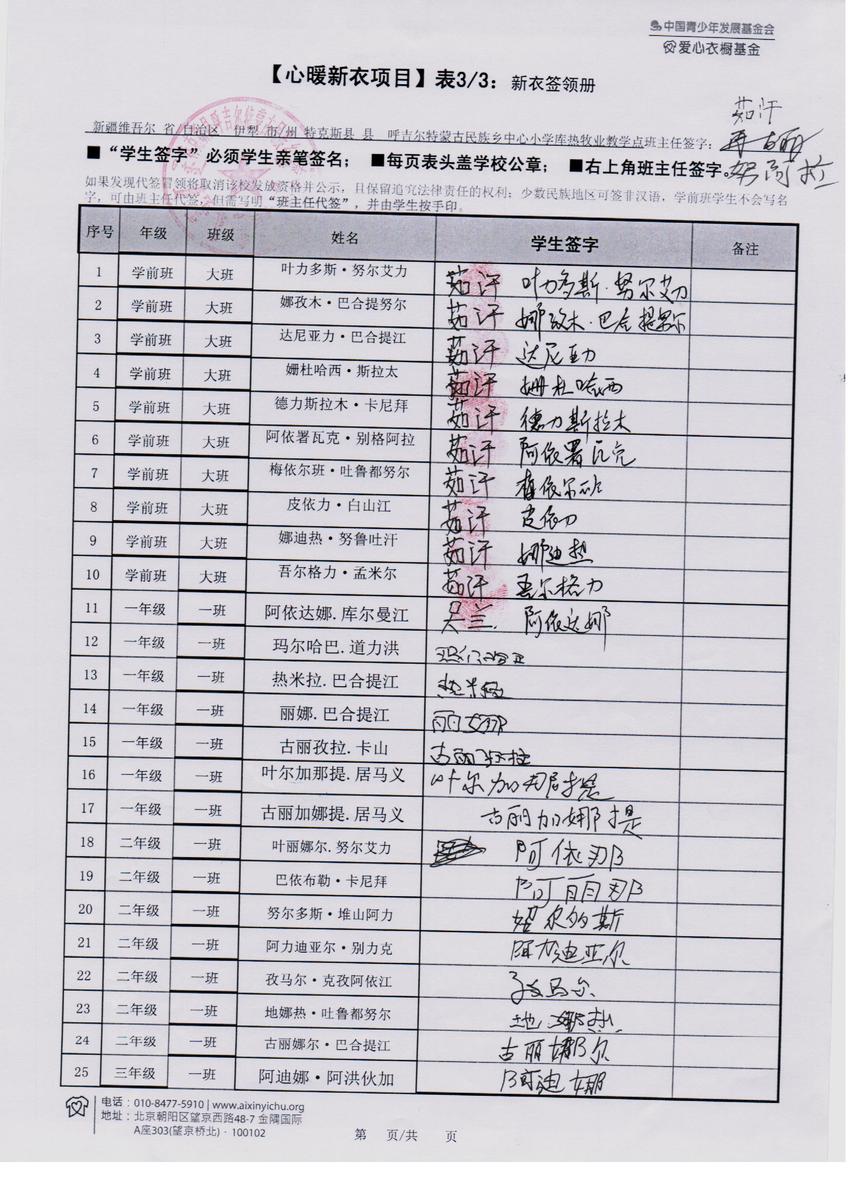 中国青少年发展基金会
爱心衣橱基金
【心暖新衣项目】表3/3：新衣签领册
茹汗
新疆维吾尔 省/自治区 伊犁 市/州 特克斯县 县 呼吉尔特蒙古民族乡中心小学库热牧业教学点班主任签字：
■“学生签字”必须学生亲笔签名； ■每页表头盖学校公章； ■右上角班主任签字。
如果发现代签冒领将取消该校发放资格并公示，且保留追究法律责任的权利；少数民族地区可签非汉语，学前班学生不会写名
字，可由班主任代签，但需写明“班主任代签”，并由学生按手印。
序号 年级 班级 姓名 学生签字 备注
1 学前班 大班 叶力多斯·努尔艾力 茹汗 叶力多斯·努尔艾力
2 学前班 大班 娜孜木·巴合提努尔 茹汗 娜孜木·巴合提努尔
3 学前班 大班 达尼亚力·巴合提江 茹汗 达尼亚力
4 学前班 大班 姗杜哈西·斯拉太 茹汗 姗杜哈西
5 学前班 大班 德力斯拉木·卡尼拜 茹汗 德力斯拉木
6 学前班 大班 阿依署瓦克·别格阿拉 茹汗 阿依署瓦克
7 学前班 大班 梅依尔班·吐鲁都努尔 茹汗 梅依尔班
8 学前班 大班 皮依力·白山江 茹汗 皮依力
9 学前班 大班 娜迪热·努鲁吐汗 茹汗 娜迪热
10 学前班 大班 吾尔格力·孟米尔 茹汗 吾尔格力
11 一年级 一班 阿依达娜.库尔曼江 阿依达娜
12 一年级 一班 玛尔哈巴.道力洪
13 一年级 一班 热米拉.巴合提江 热米拉
14 一年级 一班 丽娜.巴合提江 丽娜
15 一年级 一班 古丽孜拉.卡山 古丽孜拉
16 一年级 一班 叶尔加那提.居马义 叶尔加那提
17 一年级 一班 古丽加娜提.居马义 古丽加娜提
18 二年级 一班 叶丽娜尔.努尔艾力 阿依
19 二年级 一班 巴依布勒·卡尼拜
20 二年级 一班 努尔多斯·堆山阿力 努尔多斯
21 二年级 一班 阿力迪亚尔·别力克 阿力迪亚尔
22 二年级 一班 孜马尔·克孜阿依江 孜马尔
23 二年级 一班 地娜热·吐鲁都努尔 地娜热
24 二年级 一班 古丽娜尔·巴合提江 古丽娜尔
25 三年级 一班 阿迪娜·阿洪伙加 阿迪娜
电话：010-8477-5910 | www.aixinyichu.org
地址：北京朝阳区望京西路48-7 金隅国际
A座303(望京桥北)·100102
第 页/共 页